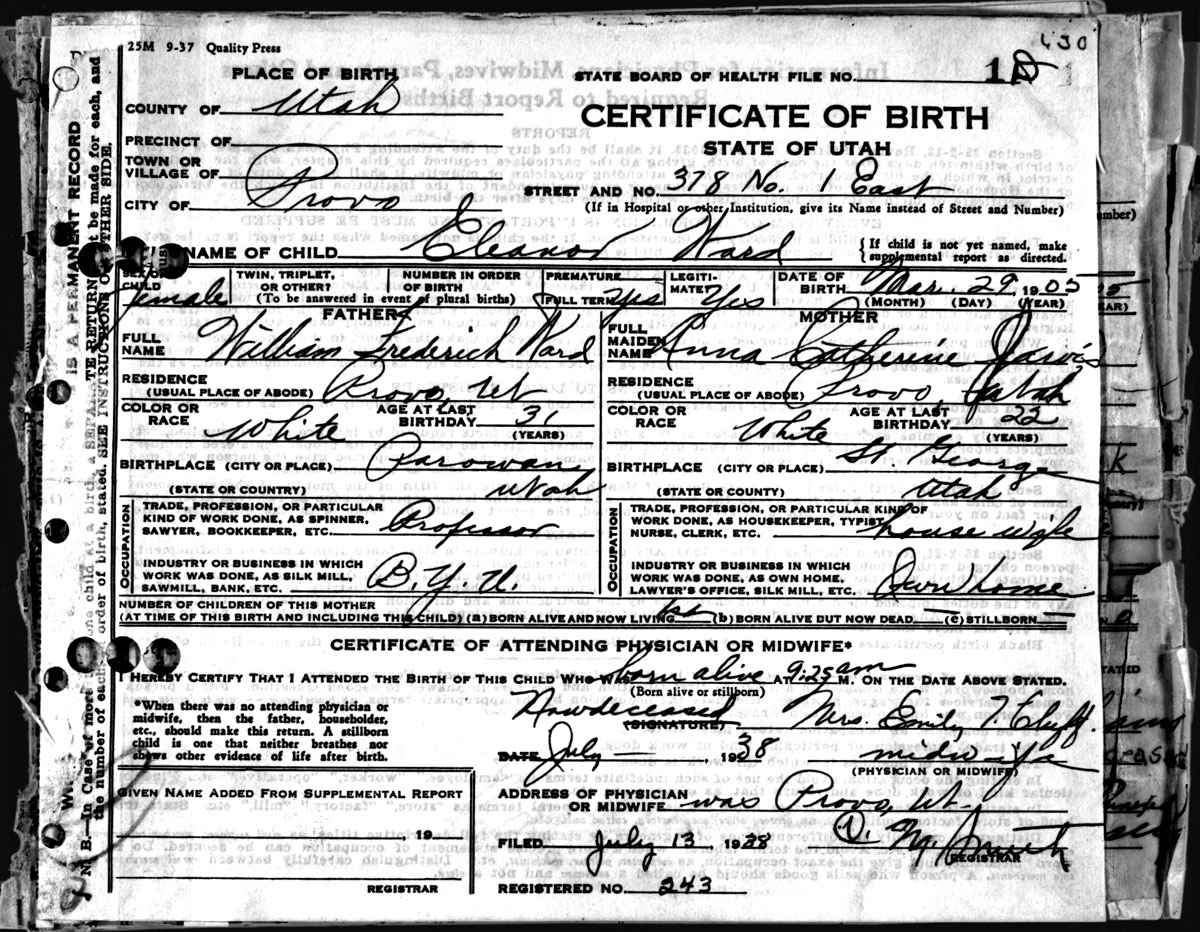 25M 9-37 Quality Press
PLACE OF BIRTH
STATE BOARD OF HEALTH FILE NO.
COUNTY OF Utah
CERTIFICATE OF BIRTH
PRECINCT OF
STATE OF UTAH
TOWN OR
VILLAGE OF
STREET AND NO. 378 No. 1 East
CITY OF Provo
(If in Hospital or other Institution, give its Name instead of Street and Number)
NAME OF CHILD Eleanor Ward
{If child is not yet named, make
supplemental report as directed.
SEX OF
CHILD female
TWIN, TRIPLET,
OR OTHER?
NUMBER IN ORDER
OF BIRTH
(To be answered in event of plural births)
PREMATURE
FULL TERM yes
LEGITI-
MATE? Yes
DATE OF
BIRTH Mar. 29, 1905
(MONTH) (DAY) (YEAR)
FATHER
FULL
NAME William Frederick Ward
RESIDENCE
(USUAL PLACE OF ABODE) Provo, Ut
COLOR OR
RACE White
AGE AT LAST
BIRTHDAY 31
(YEARS)
BIRTHPLACE (CITY OR PLACE) Parowan,
(STATE OR COUNTRY) Utah
OCCUPATION
TRADE, PROFESSION, OR PARTICULAR
KIND OF WORK DONE, AS SPINNER,
SAWYER, BOOKKEEPER, ETC. Professor
INDUSTRY OR BUSINESS IN WHICH
WORK WAS DONE, AS SILK MILL,
SAWMILL, BANK, ETC. B.Y.U.
MOTHER
FULL
MAIDEN
NAME Anna Catherine Jarvis
RESIDENCE
(USUAL PLACE OF ABODE) Provo, Utah
COLOR OR
RACE White
AGE AT LAST
BIRTHDAY 22
(YEARS)
BIRTHPLACE (CITY OR PLACE) St George
(STATE OR COUNTY) Utah
OCCUPATION
TRADE, PROFESSION, OR PARTICULAR KIND OF
WORK DONE, AS HOUSEKEEPER, TYPIST,
NURSE, CLERK, ETC. house wife
INDUSTRY OR BUSINESS IN WHICH
WORK WAS DONE, AS OWN HOME,
LAWYER'S OFFICE, SILK MILL, ETC. Own home
NUMBER OF CHILDREN OF THIS MOTHER
(AT TIME OF THIS BIRTH AND INCLUDING THIS CHILD) (a) BORN ALIVE AND NOW LIVING 1st (b) BORN ALIVE BUT NOW DEAD (c) STILLBORN
CERTIFICATE OF ATTENDING PHYSICIAN OR MIDWIFE*
I HEREBY CERTIFY THAT I ATTENDED THE BIRTH OF THIS CHILD WHO WAS born alive AT 9:25 am M. ON THE DATE ABOVE STATED.
(Born alive or stillborn)
*When there was no attending physician or
midwife, then the father, householder,
etc., should make this return. A stillborn
child is one that neither breathes nor
shows other evidence of life after birth.
Now deceased Mrs. Emily T.
(SIGNATURE)
DATE July 1938 midwife
(PHYSICIAN OR MIDWIFE)
ADDRESS OF PHYSICIAN
OR MIDWIFE was Provo, Ut.
GIVEN NAME ADDED FROM SUPPLEMENTAL REPORT
19
REGISTRAR
FILED July 13, 1938 M. Smith
REGISTRAR
REGISTERED NO. 243